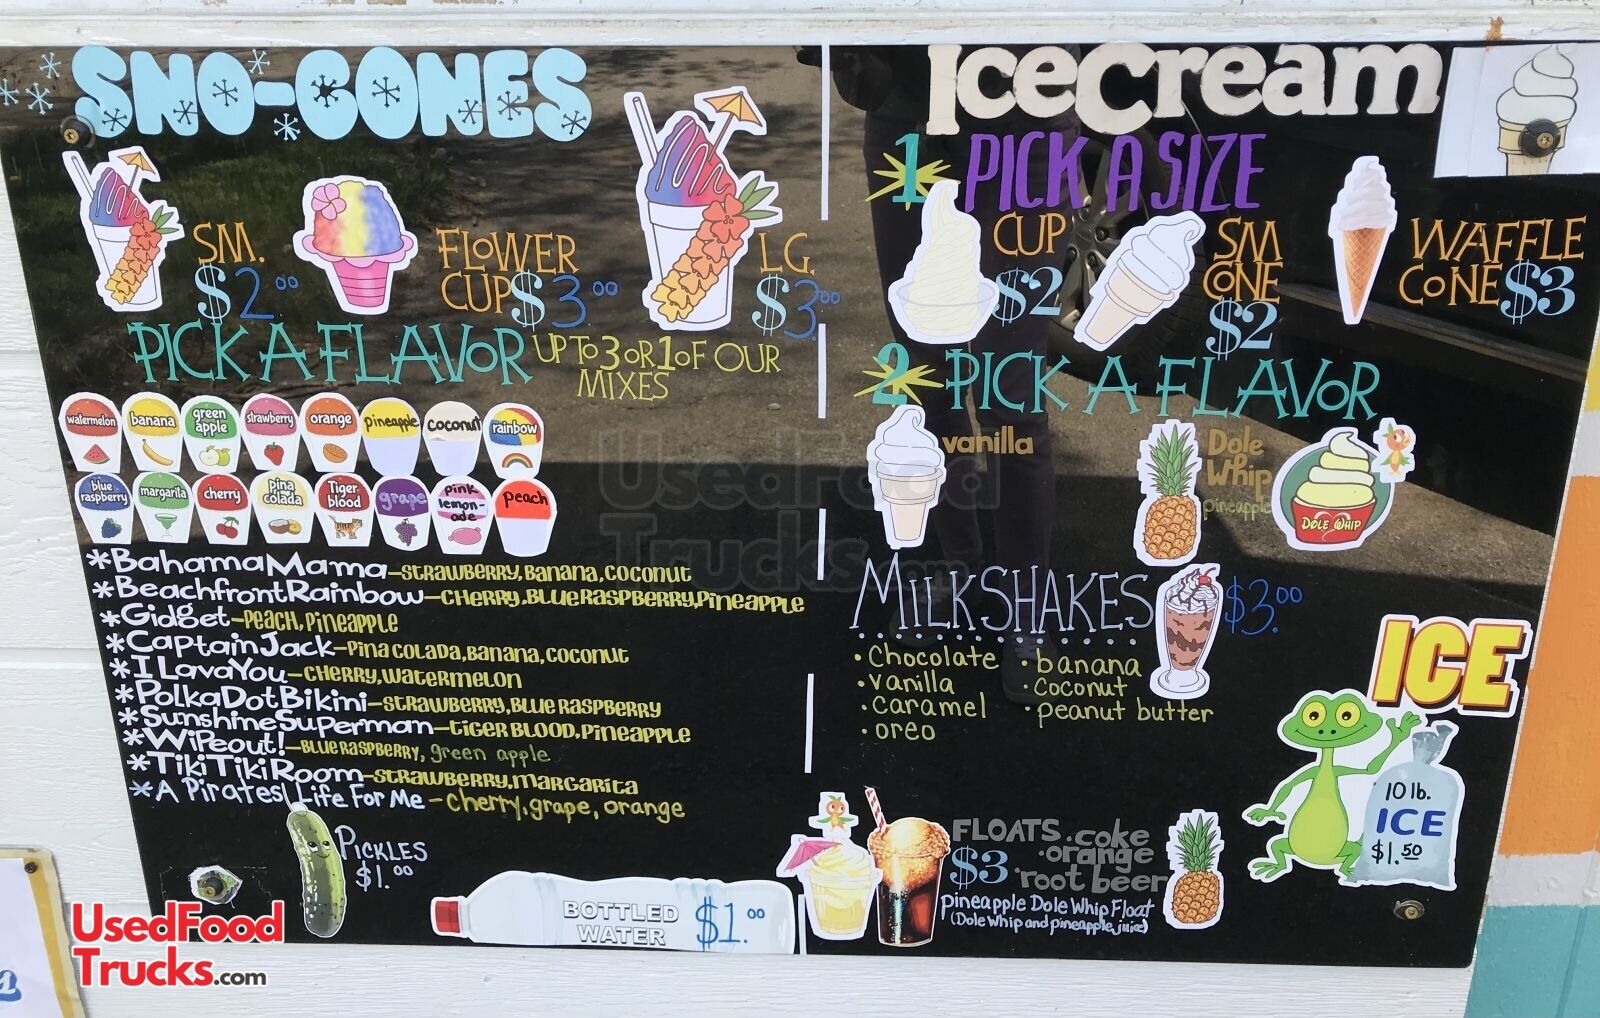 SNO-CONES
SM.
$2.00
FLOWER
CUP $3.00
LG.
$3.00
PICK A FLAVOR UP TO 3 OR 1 OF OUR
MIXES
watermelon banana green apple strawberry orange pineapple coconut rainbow
blue raspberry margarita cherry pina colada Tiger blood grape pink lemon-ade peach
*Bahama Mama-strawberry, Banana, coconut
*Beachfront Rainbow-cherry, blue raspberry, pineapple
*Gidget-peach, pineapple
*Captain Jack-pina colada, banana, coconut
*I Lava You-cherry, watermelon
*Polka Dot Bikini-strawberry, blue raspberry
*Sunshine Superman-tiger blood, pineapple
*Wipeout!-blue raspberry, green apple
*Tiki Tiki Room-strawberry, margarita
*A Pirates Life For Me-cherry, grape, orange
PICKLES
$1.00
BOTTLED
WATER
$1.00
IceCream
1 PICK A SIZE
CUP
$2
SM
CONE
$2
WAFFLE
CONE $3
2 PICK A FLAVOR
vanilla
Dole
Whip
pineapple
DOLE WHIP
MILKSHAKES $3.00
• Chocolate • banana
• vanilla • coconut
• caramel • peanut butter
• oreo
ICE
10 lb.
ICE
$1.50
FLOATS • coke
• orange
$3 • root beer
pineapple Dole Whip Float
(Dole Whip and pineapple juice)
UsedFood
Trucks.com
UsedFood
Trucks.com